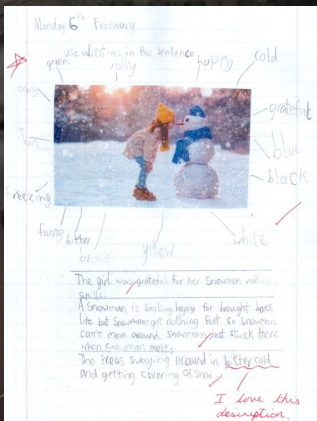 Monday 6th February
use adjectives in the sentence
green
jolly
happy
cold
grateful
blue
black
Freezing
funny
bitter
brown
yellow
white
The girl was grateful for her Snowman
smills.
A Snowman is smiling happy for brought back
life but Snowman got nothing feet so Snowman
can't move around. Snowman stuck there
when Snowman melts.
The trees swaying around in bitter cold
and getting covering of snow
I love this
description.